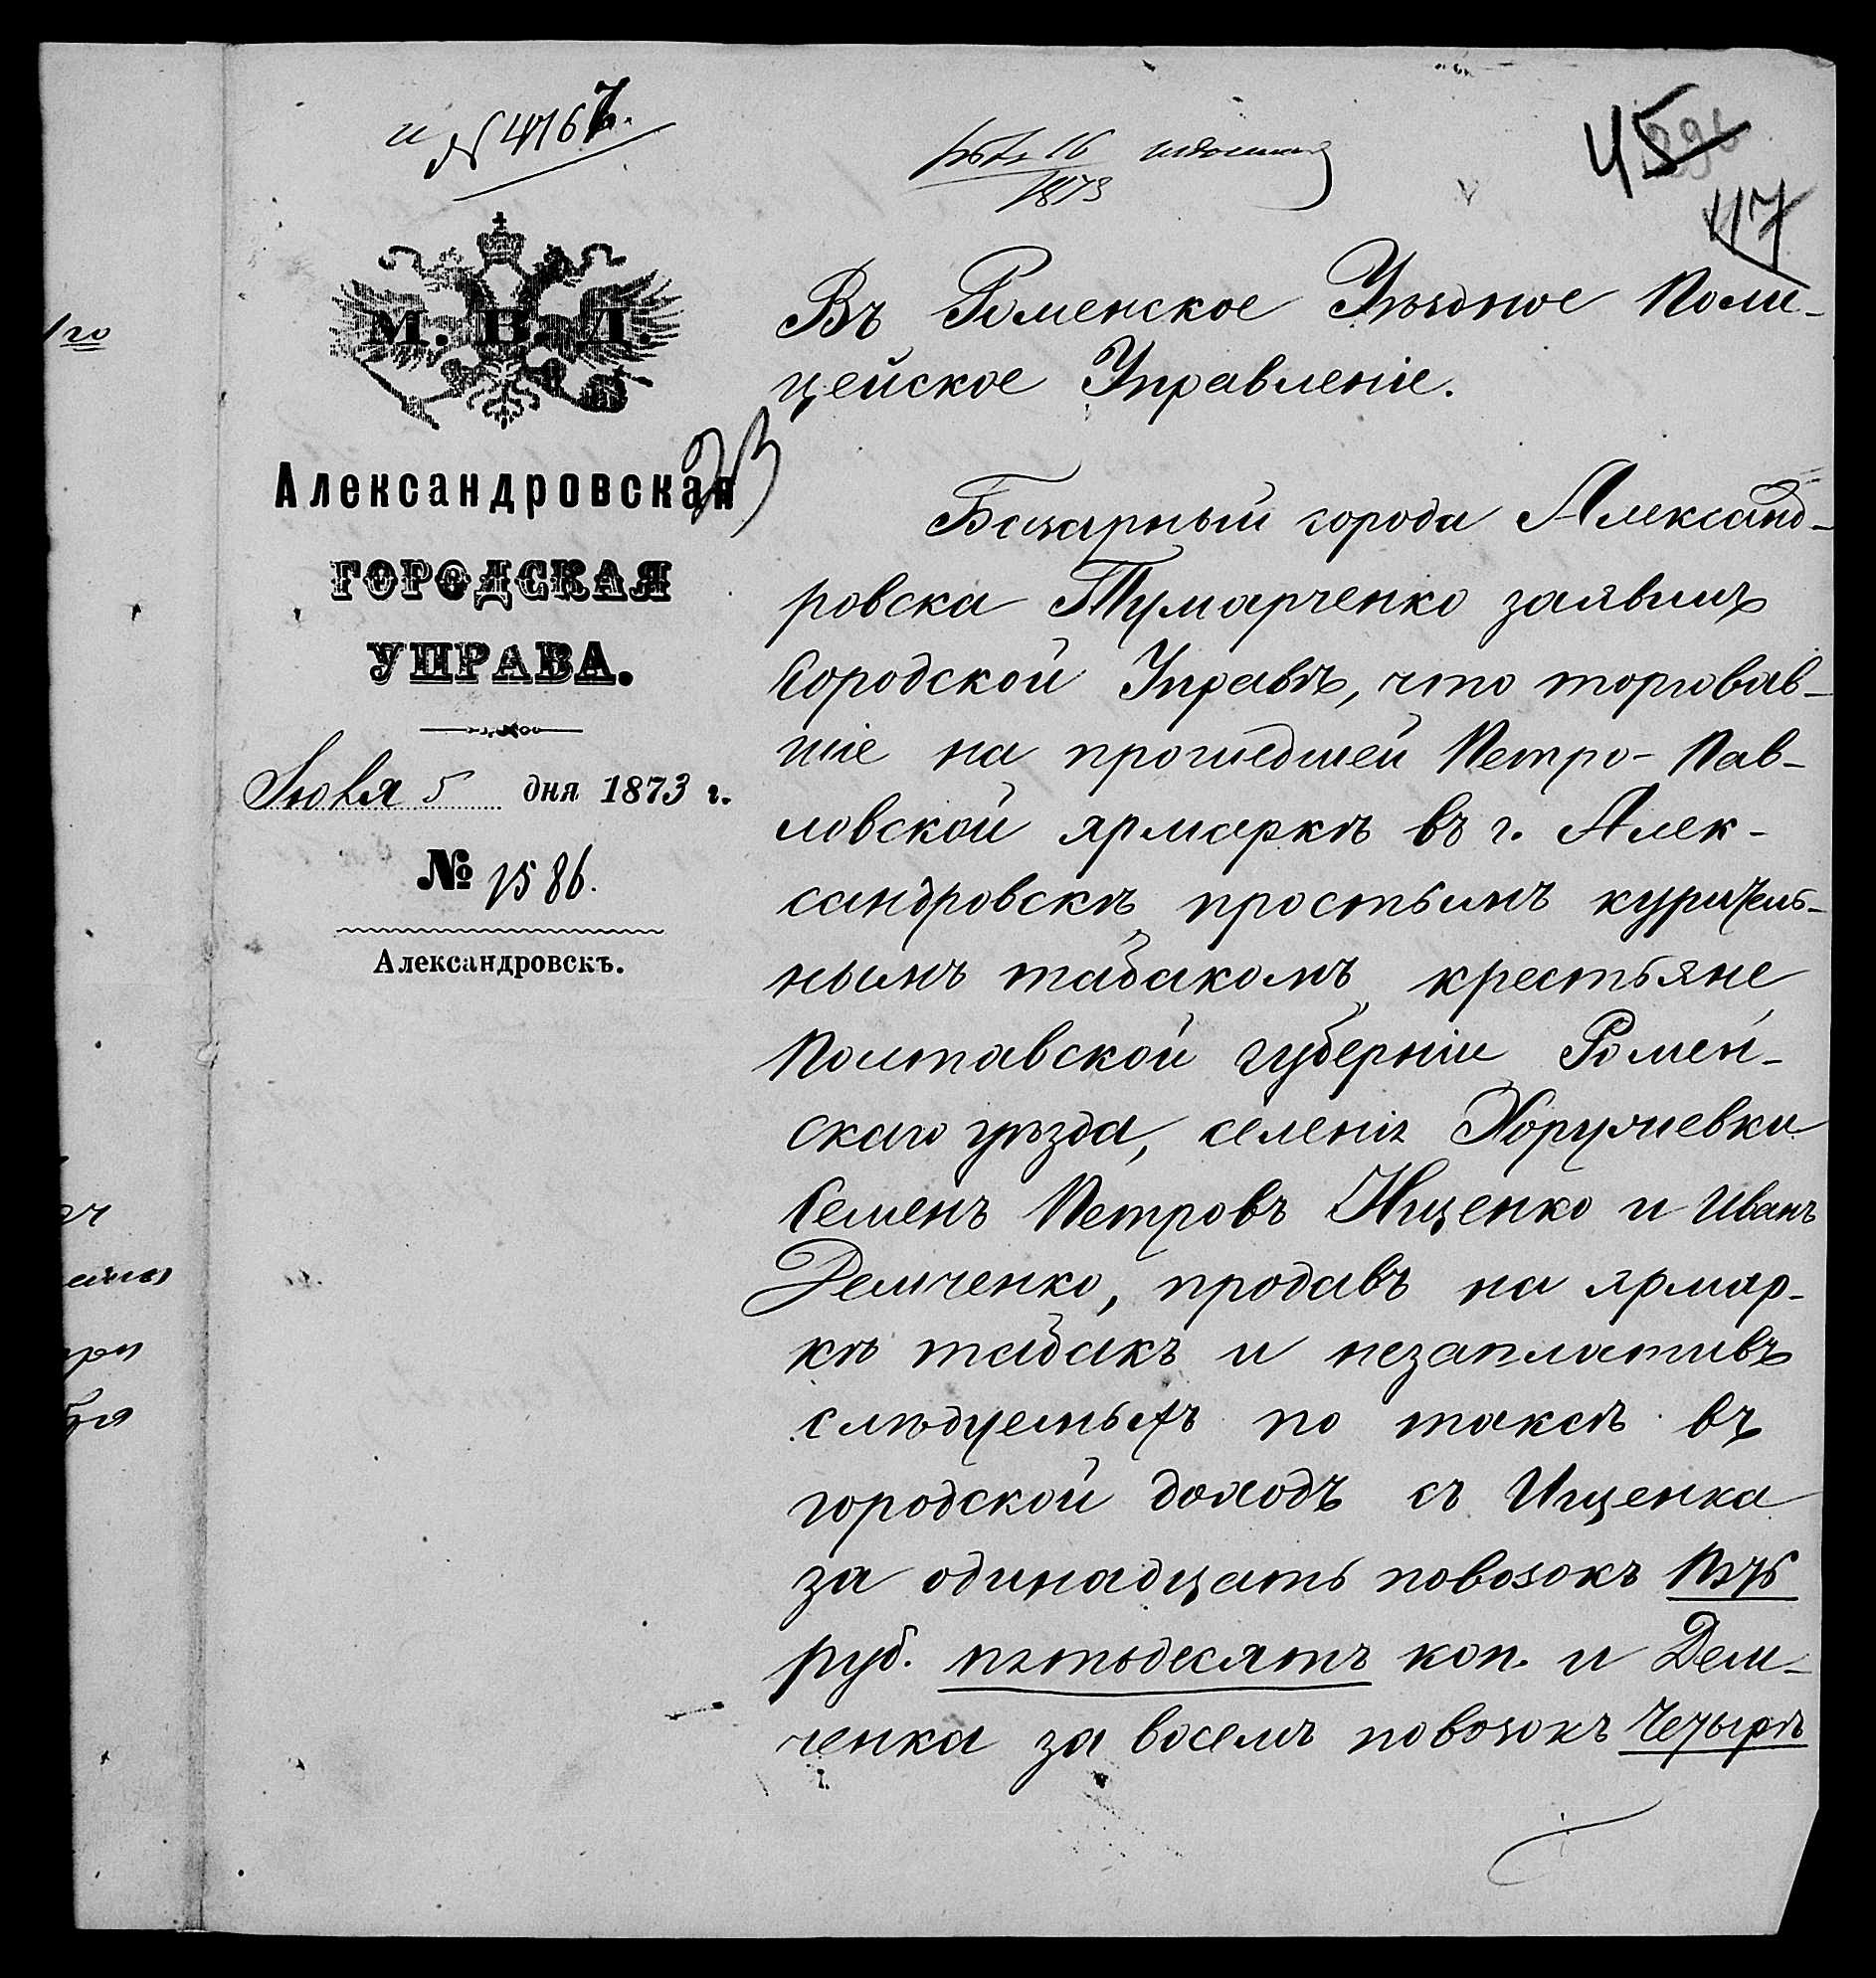 и № 4167.
16
1873
45
117
М. В. Д.
Александровская
ГОРОДСКАЯ
УПРАВА.
Іюля 5 дня 1873 г.
№ 1586.
Александровскъ.
Въ Роменское Уѣздное Поли-
цейское Управленіе.
Базарный города Александ-
ровска Тумарченко заявилъ
Городской Управѣ, что торговав-
шіе на прошедшей Петро-Пав-
ловской ярмаркѣ въ г. Алек-
сандровскѣ простымъ куритель-
нымъ табакомъ крестьяне
Полтавской губерніи Ромен-
скаго уѣзда, селенія Хоружевки
Семенъ Петровъ Ищенко и Иванъ
Демченко, продавъ на ярмар-
кѣ табакъ и незаплативъ
слѣдуемыхъ по таксѣ въ
городской доходъ съ Ищенка
за одинадцать повозокъ пять
руб. пятьдесятъ коп. и Дем-
ченка за восемъ повозокъ четырѣ